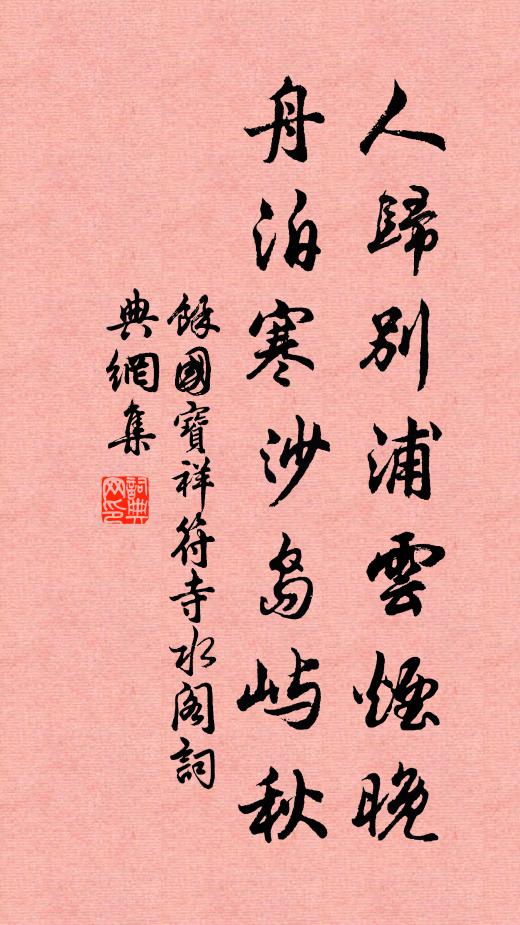 人歸別浦雲煙晚
舟泊寒沙島嶼秋
餘國寶祥符寺水閣詞
典網集
詞典网印